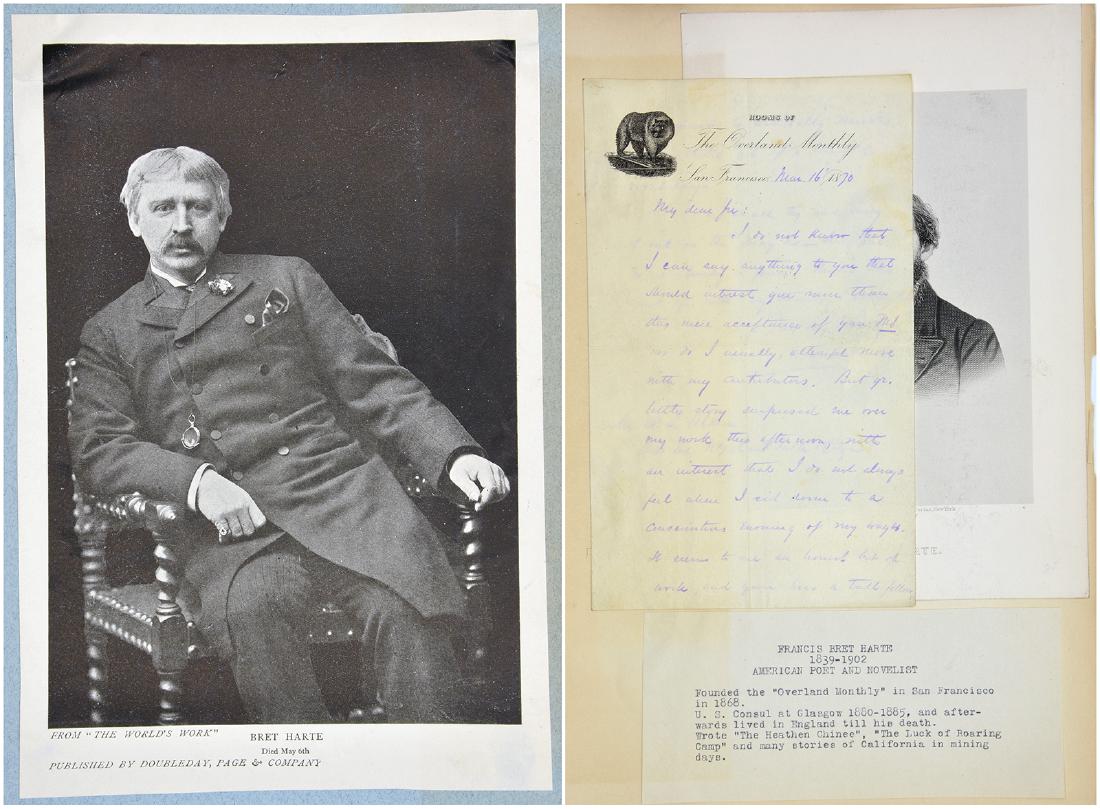 FROM "THE WORLD'S WORK"
BRET HARTE
Died May 6th
PUBLISHED BY DOUBLEDAY, PAGE & COMPANY
ROOMS OF
The Overland Monthly
San Francisco, Mar 16th 1870
My dear Sir:
I do not know that
I can say anything to you that
should interest you more than
this mere acceptance of your MS
nor do I usually attempt more
with my contributors. But yr.
little story surprised me over
my work this afternoon, with
an interest that I do not always
feel when I sit down to a
conscientious
of my
It seems to me an honest bit of
work and your hero a tall fellow
York
TE.
FRANCIS BRET HARTE
1839-1902
AMERICAN POET AND NOVELIST
Founded the "Overland Monthly" in San Francisco
in 1868.
U. S. Consul at Glasgow 1880-1885, and after-
wards lived in England till his death.
Wrote "The Heathen Chinee", "The Luck of Roaring
Camp" and many stories of California in mining
days.